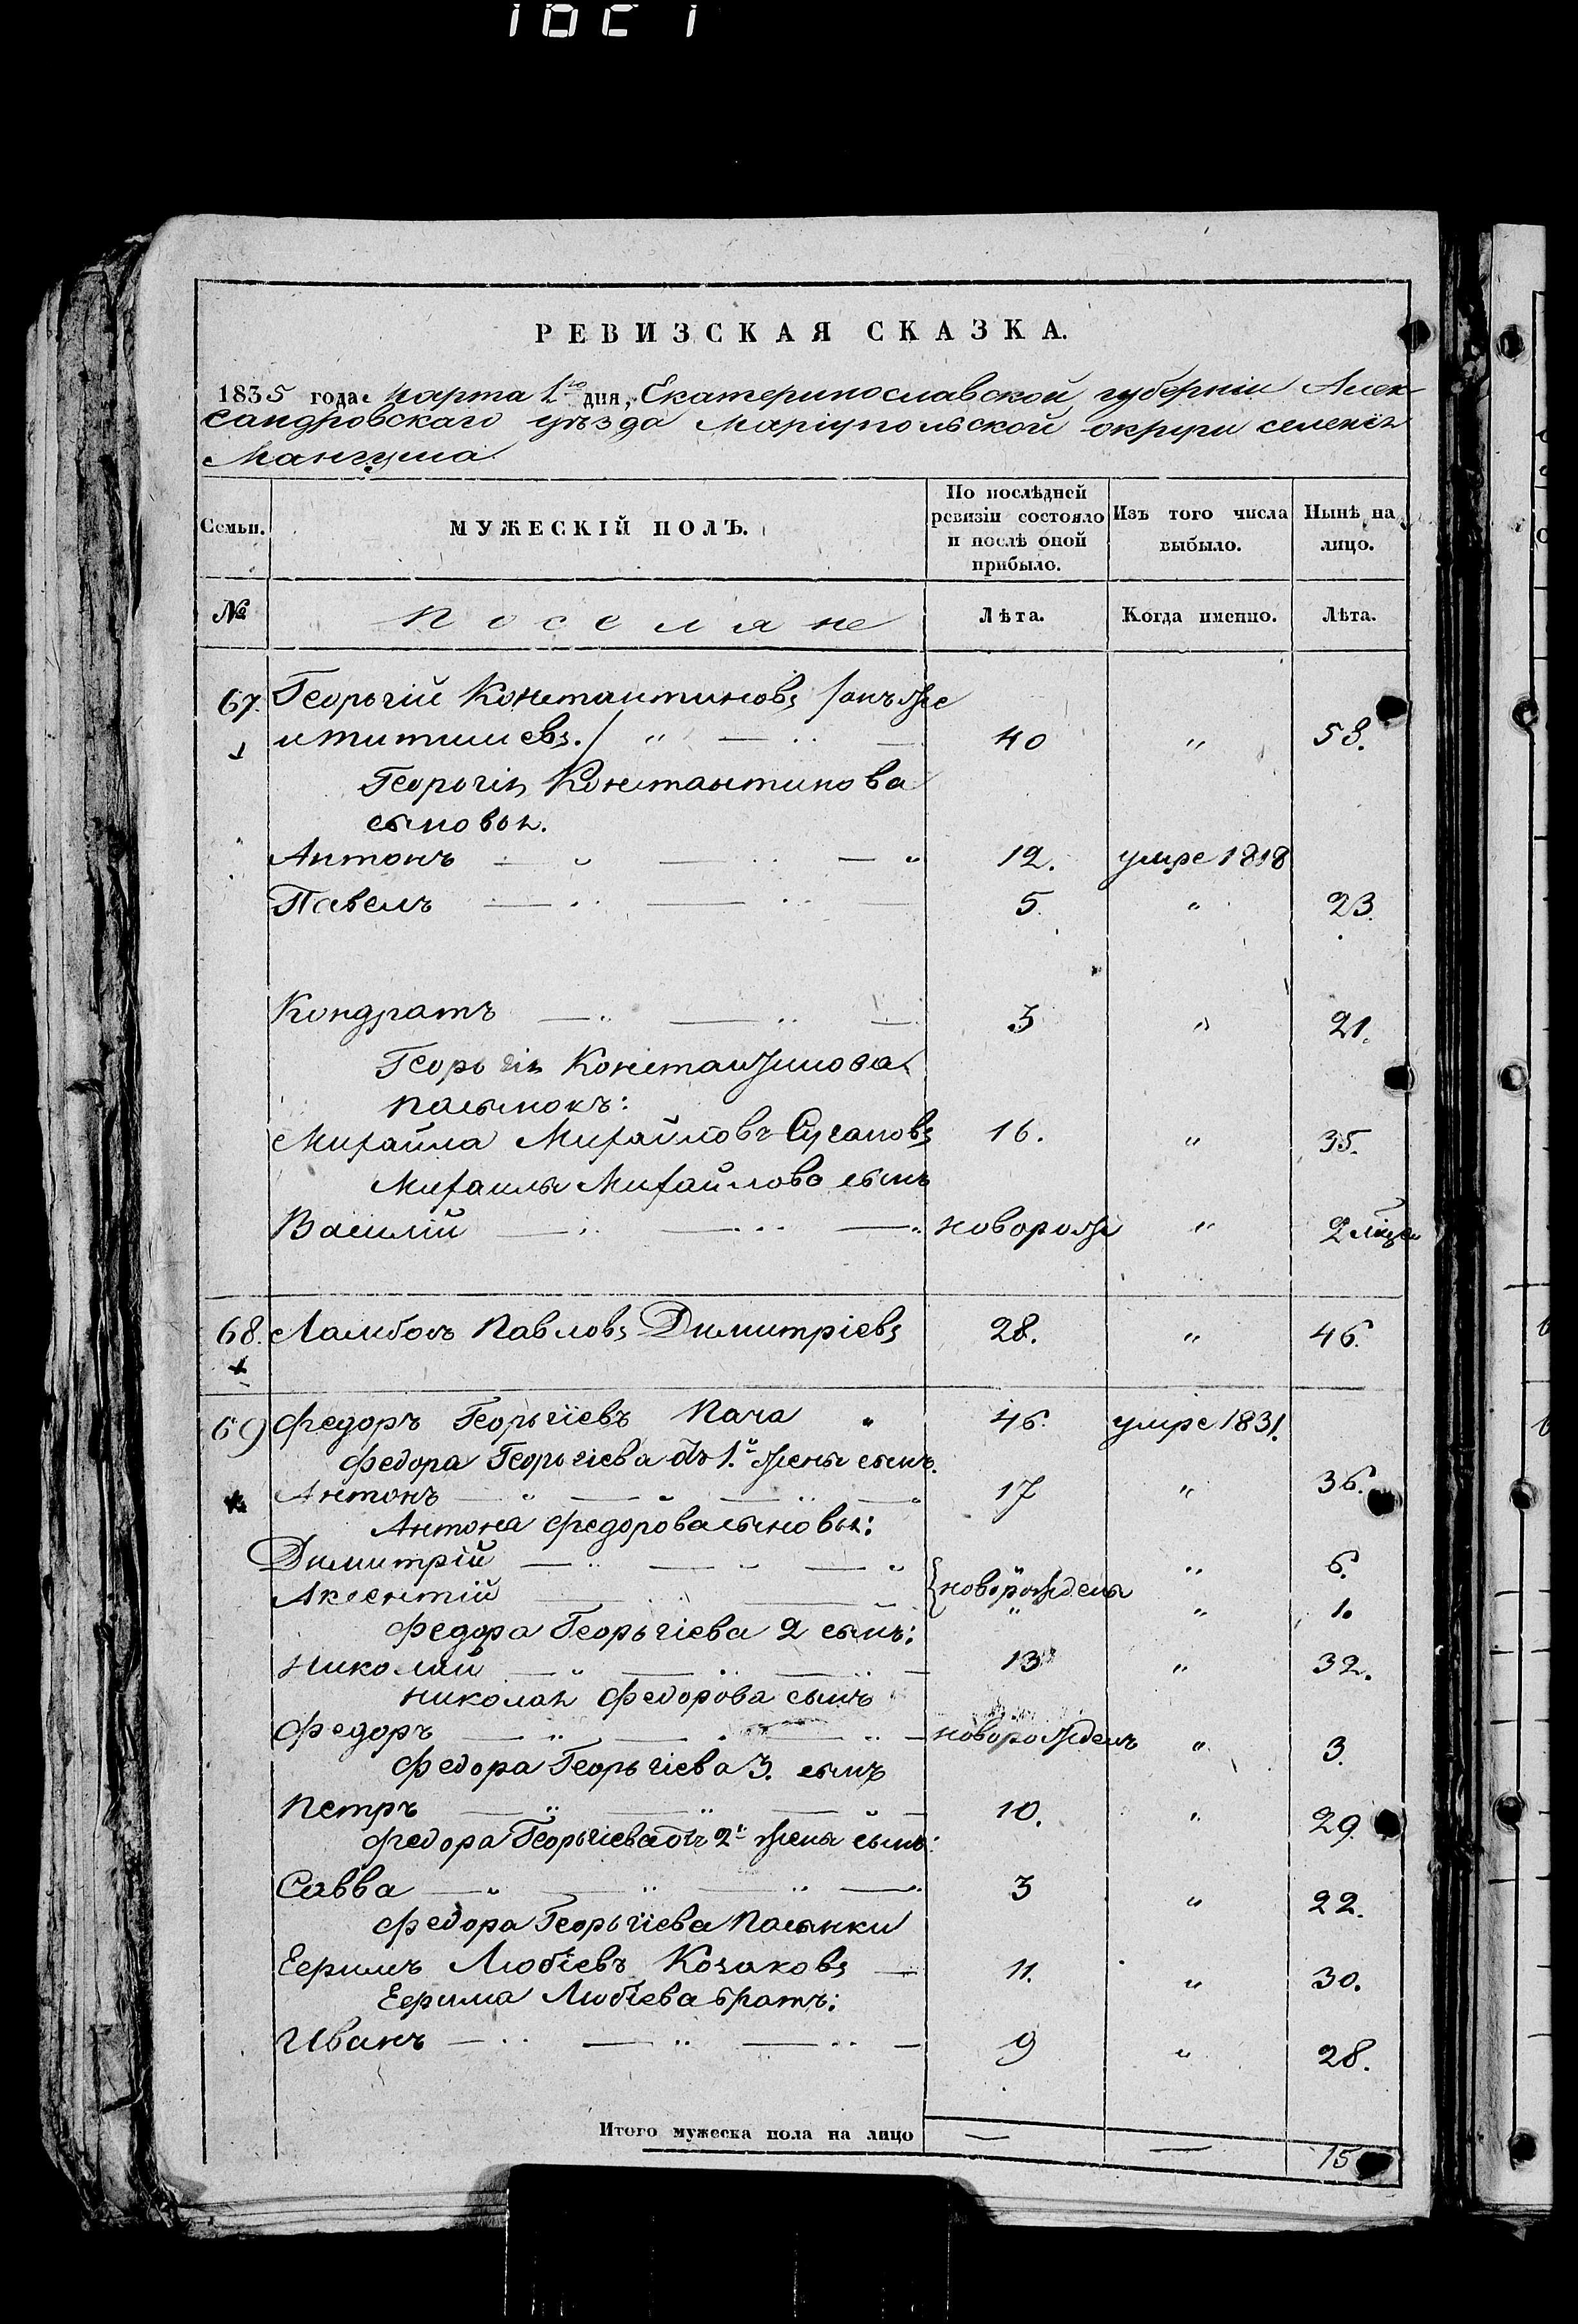 РЕВИЗСКАЯ СКАЗКА.
1835 года Марта 1го дня, Екатеринославской губерніи Алек
сандровскаго уѣзда Маріупольской округи селенія
Мангуша
Семьи.
МУЖЕСКІЙ ПОЛЪ.
По послѣдней ревизіи состояло и послѣ оной прибыло.
Изъ того числа выбыло.
Нынѣ на лицо.
№ Поселяне Лѣта. Когда именно. Лѣта.
67. Георьгій Константиновъ /онъ же
40 " 53.
Георьгія Константинова
сыновья.
Антонъ 12. умре 1818
Павелъ 5. " 23.
Кондратъ 3 " 21.
Георьгія Константинова
пасынокъ:
Михайла Михайловъ Сусановъ 16. " 35.
Михаилы Михайлова сынъ
Василій новорож " 2
68. Ламбонъ Павловъ Димитріевъ 28. " 46.
69 Федоръ Георьгіевъ Пача " 46. умре 1831.
Федора Георьгіева отъ 1.й жены сынъ.
Антонъ 17 " 36.
Антона Федорова сыновья:
Димитрій " 6.
Аксентій новорождены " 1.
Федора Георьгіева 2 сынъ:
Николай 13 " 32.
Николая Федорова сынъ
Федоръ новорожденъ " 3.
Федора Георьгіева 3. сынъ
Петръ 10. " 29.
Федора Георьгіева отъ 2й жены сынъ:
Савва 3 " 22.
Федора Георьгіева пасынки
Ефримъ Любіевъ Козаковъ 11. " 30.
Ефрима Любіева братъ:
Иванъ 9 " 28.
Итого мужеска пола на лицо — — 15